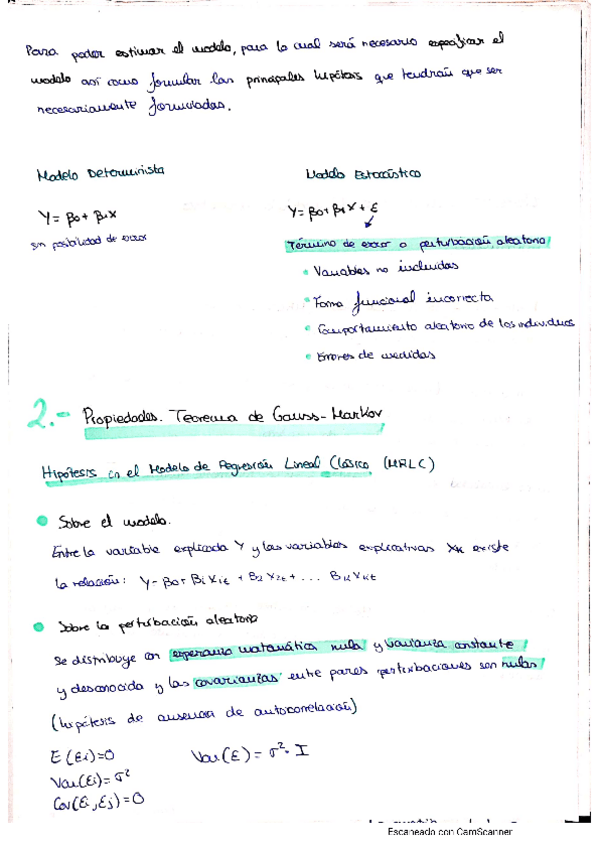 Para poder estimar el modelo, para lo cual será necesario especificar el
modelo así como formular las principales hipótesis que tendrán que ser
necesariamente formuladas.
Modelo Determinista
Y = β0 + β1X
sin posibilidad de error
Modelo Estocástico
Y = β0 + β1X + ε
Término de error o perturbación aleatoria
• Variables no incluidas
• Forma funcional incorrecta
• Comportamiento aleatorio de los individuos
• Errores de medidas
2.- Propiedades. Teorema de Gauss-Markov
Hipótesis en el Modelo de Regresión Lineal Clásico (MRLC)
• Sobre el modelo.
Entre la variable explicada Y y las variables explicativas XK existe
la relación: Y = β0 + β1X1t + β2X2t + ... BKXKt
• Sobre la perturbación aleatoria
Se distribuye con esperanza matemática nula y varianza constante
y desconocida y las covarianzas entre pares perturbaciones son nulas
(hipótesis de ausencia de autocorrelación)
E(εi)=0
Var(εi)= σ²
Cov(εi, εj)=0
Var(ε) = σ² · I
Escaneado con CamScanner